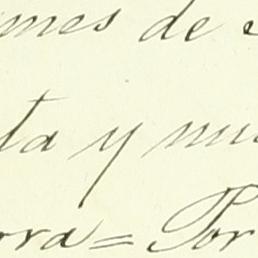 mes de
ta y nu
rra = Por